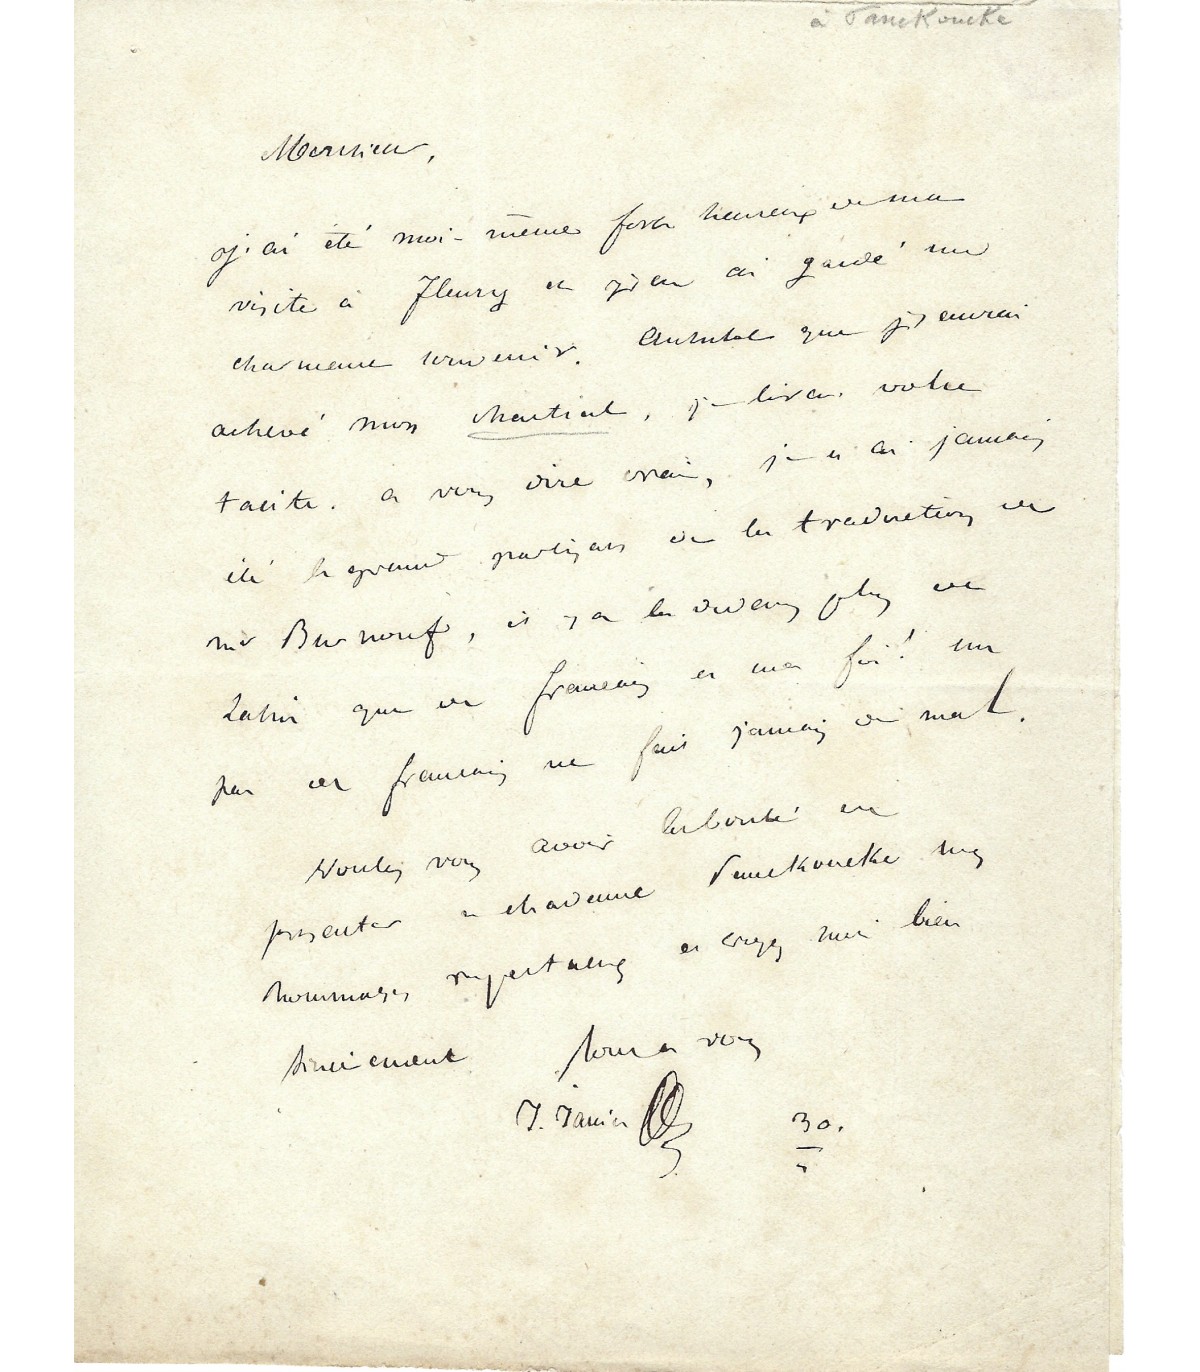 à Panckoucke
Monsieur,
j'ai été moi-même fort heureux de ma
visite à Fleury et j'en ai gardé un
charmant souvenir. Aussitôt que j'aurai
achevé mon Martial, je lirai votre
tacite. a vous dire vrai, je n'ai jamais
été le grand partisan de la traduction de
mr Burnouf, il y a là dedans plus de
Latin que de français et ma foi! un
peu de français ne fait jamais de mal.
Voulez vous avoir la bonté de
présenter à Madame Panckoucke mes
hommages respectueux et croyez moi bien
sincèrement tout à vous
J. Janin 30.